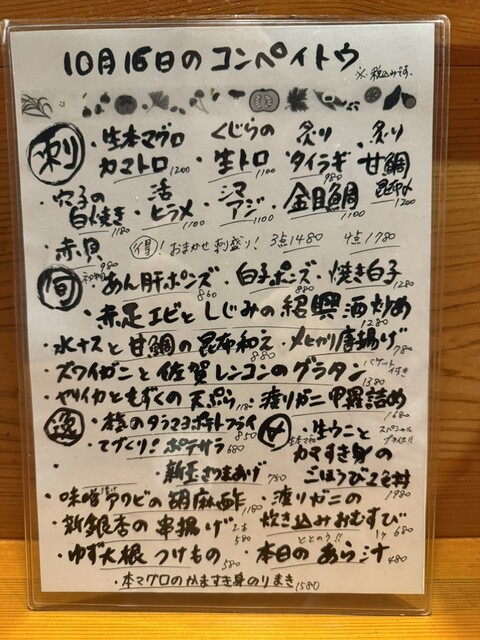 10月16日のコンペイトウ
※税込みです。
刺
・生本マグロ カマトロ 1200
・くじらの生トロ 1100
・炙りタイラギ 980
・炙り甘鯛昆布〆 1200
・穴子の白焼き 1180
・活ヒラメ 1100
・シマアジ 1100
・金目鯛 1100
・赤貝 980
得! おまかせ刺盛り! 3点1480 4点1780
旬
あん肝ポンズ 860
・白子ポンズ 880
・焼き白子 1280
・赤足エビとしじみの紹興酒炒め 1280
・水ナスと甘鯛の昆布和え 880
・メヒカリ唐揚げ 780
・ズワイガニと佐賀レンコンのグラタン バゲット付き 1380
・ヤリイカともずくの天ぷら 1180
・渡りガニ甲羅詰め 1680
逸
タラマヨポテトフライ 850
・てづくり!ポテサラ 680
・新玉さつまあげ 780
〆
・生ウニと生本マグロカマすき身のごほうび2色丼 1980
スペシャルプライス!!
・味噌漬けアワビの胡麻酢 1180
・渡りガニの炊き込みおむすび 1ヶ 680
・新銀杏の串揚げ 2本 580
ととのう!!
・ゆず大根つけもの 580
・本日のあら汁 480
・本マグロのかますき身のりまき 1580